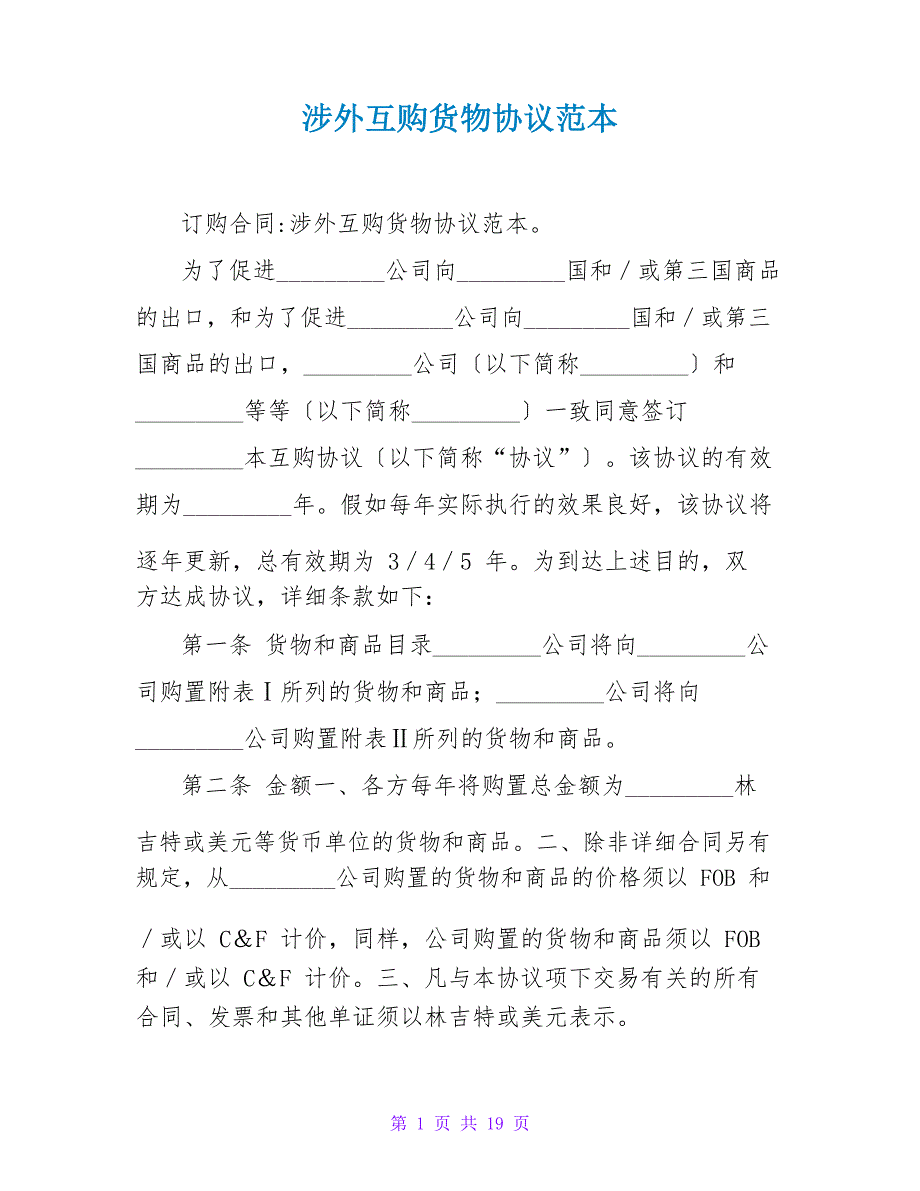 涉外互购货物协议范本
订购合同:涉外互购货物协议范本。
为了促进_________公司向_________国和／或第三国商品
的出口，和为了促进_________公司向_________国和／或第三
国商品的出口，_________公司〔以下简称_________〕和
_________等等〔以下简称_________〕一致同意签订
_________本互购协议〔以下简称“协议”〕。该协议的有效
期为_________年。假如每年实际执行的效果良好，该协议将
逐年更新，总有效期为 3／4／5 年。为到达上述目的，双
方达成协议，详细条款如下：
第一条 货物和商品目录_________公司将向_________公
司购置附表Ⅰ所列的货物和商品；_________公司将向
_________公司购置附表Ⅱ所列的货物和商品。
第二条 金额一、各方每年将购置总金额为_________林
吉特或美元等货币单位的货物和商品。二、除非详细合同另有
规定，从_________公司购置的货物和商品的价格须以 FOB 和
／或以 C＆F 计价，同样，公司购置的货物和商品须以 FOB
和／或以 C＆F 计价。三、凡与本协议项下交易有关的所有
合同、发票和其他单证须以林吉特或美元表示。
第 1 页 共 19 页